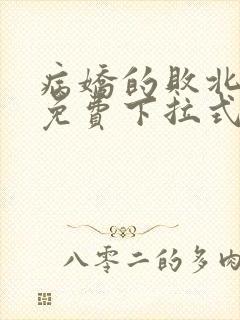 病嬌的敗北
免費下拉式
八零二的多肉